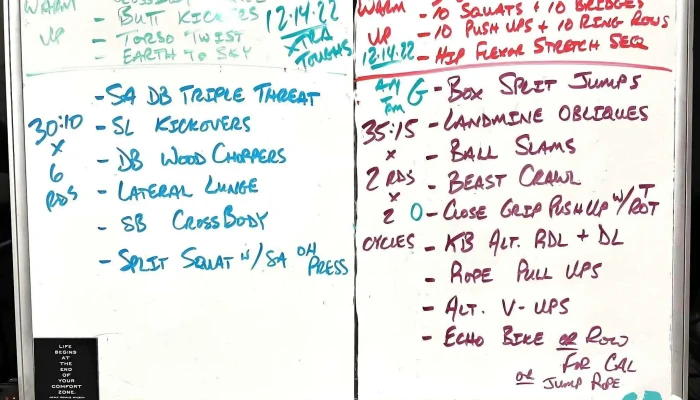 - BUTT KICKERS
- TORSO TWIST
- EARTH TO SKY
UP
12·14·22
XTRA
TOUGHS
- SA DB TRIPLE THREAT
- SL KICKOVERS
- DB WOOD CHOPPERS
- LATERAL LUNGE
- SB CROSSBODY
- SPLIT SQUAT W/ SA OH PRESS
30:10
X
6
RDS
LIFE
BEGINS
AT
THE
END
OF
YOUR
COMFORT
ZONE.
WARM
UP
12·14·22
- 10 SQUATS + 10 BRIDGES
- 10 PUSH UPS + 10 RING ROWS
- HIP FLEXOR STRETCH SEQ
G - BOX SPLIT JUMPS
- LANDMINE OBLIQUES
- BALL SLAMS
- BEAST CRAWL
O - CLOSE GRIP PUSH UP W/ T ROT
- KB ALT. RDL + DL
- ROPE PULL UPS
- ALT. V-UPS
- ECHO BIKE OR ROW
FOR CAL
OR JUMP ROPE
35:15
X
2 RDS
X
2
CYCLES